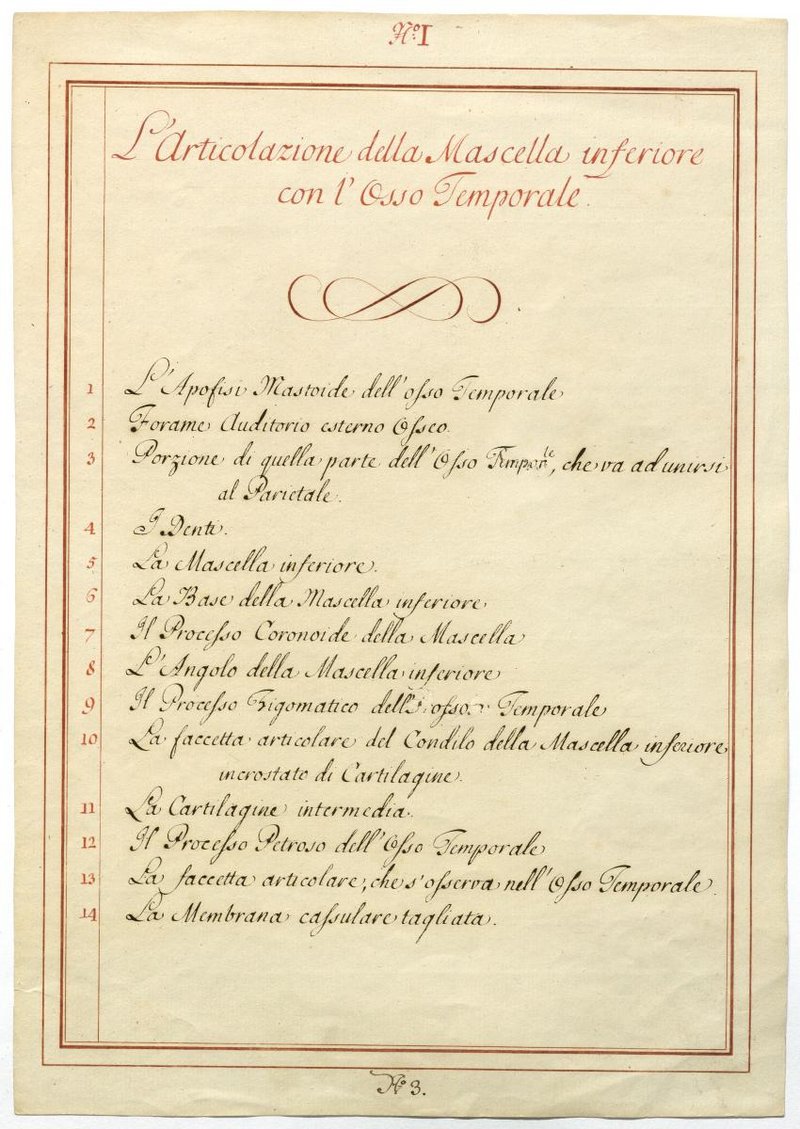 N.º I
L'Articolazione della Mascella inferiore
con l'Osso Temporale.
1 L'Apofisi Mastoide dell'osso Temporale
2 Forame Auditorio esterno Osseo.
3 Porzione di quella parte dell'Osso Tempor.le, che va ad unirsi
al Parietale.
4 I Denti.
5 La Mascella inferiore.
6 La Base della Mascella inferiore
7 Il Processo Coronoide della Mascella
8 L'Angolo della Mascella inferiore
9 Il Processo Zigomatico dell'osso Temporale
10 La faccetta articolare del Condilo della Mascella inferiore
incrostato di Cartilagine.
11 La Cartilagine intermedia.
12 Il Processo Petroso dell'Osso Temporale
13 La faccetta articolare, che s'osserva nell'Osso Temporale.
14 La Membrana cassulare tagliata.
N.º 3.